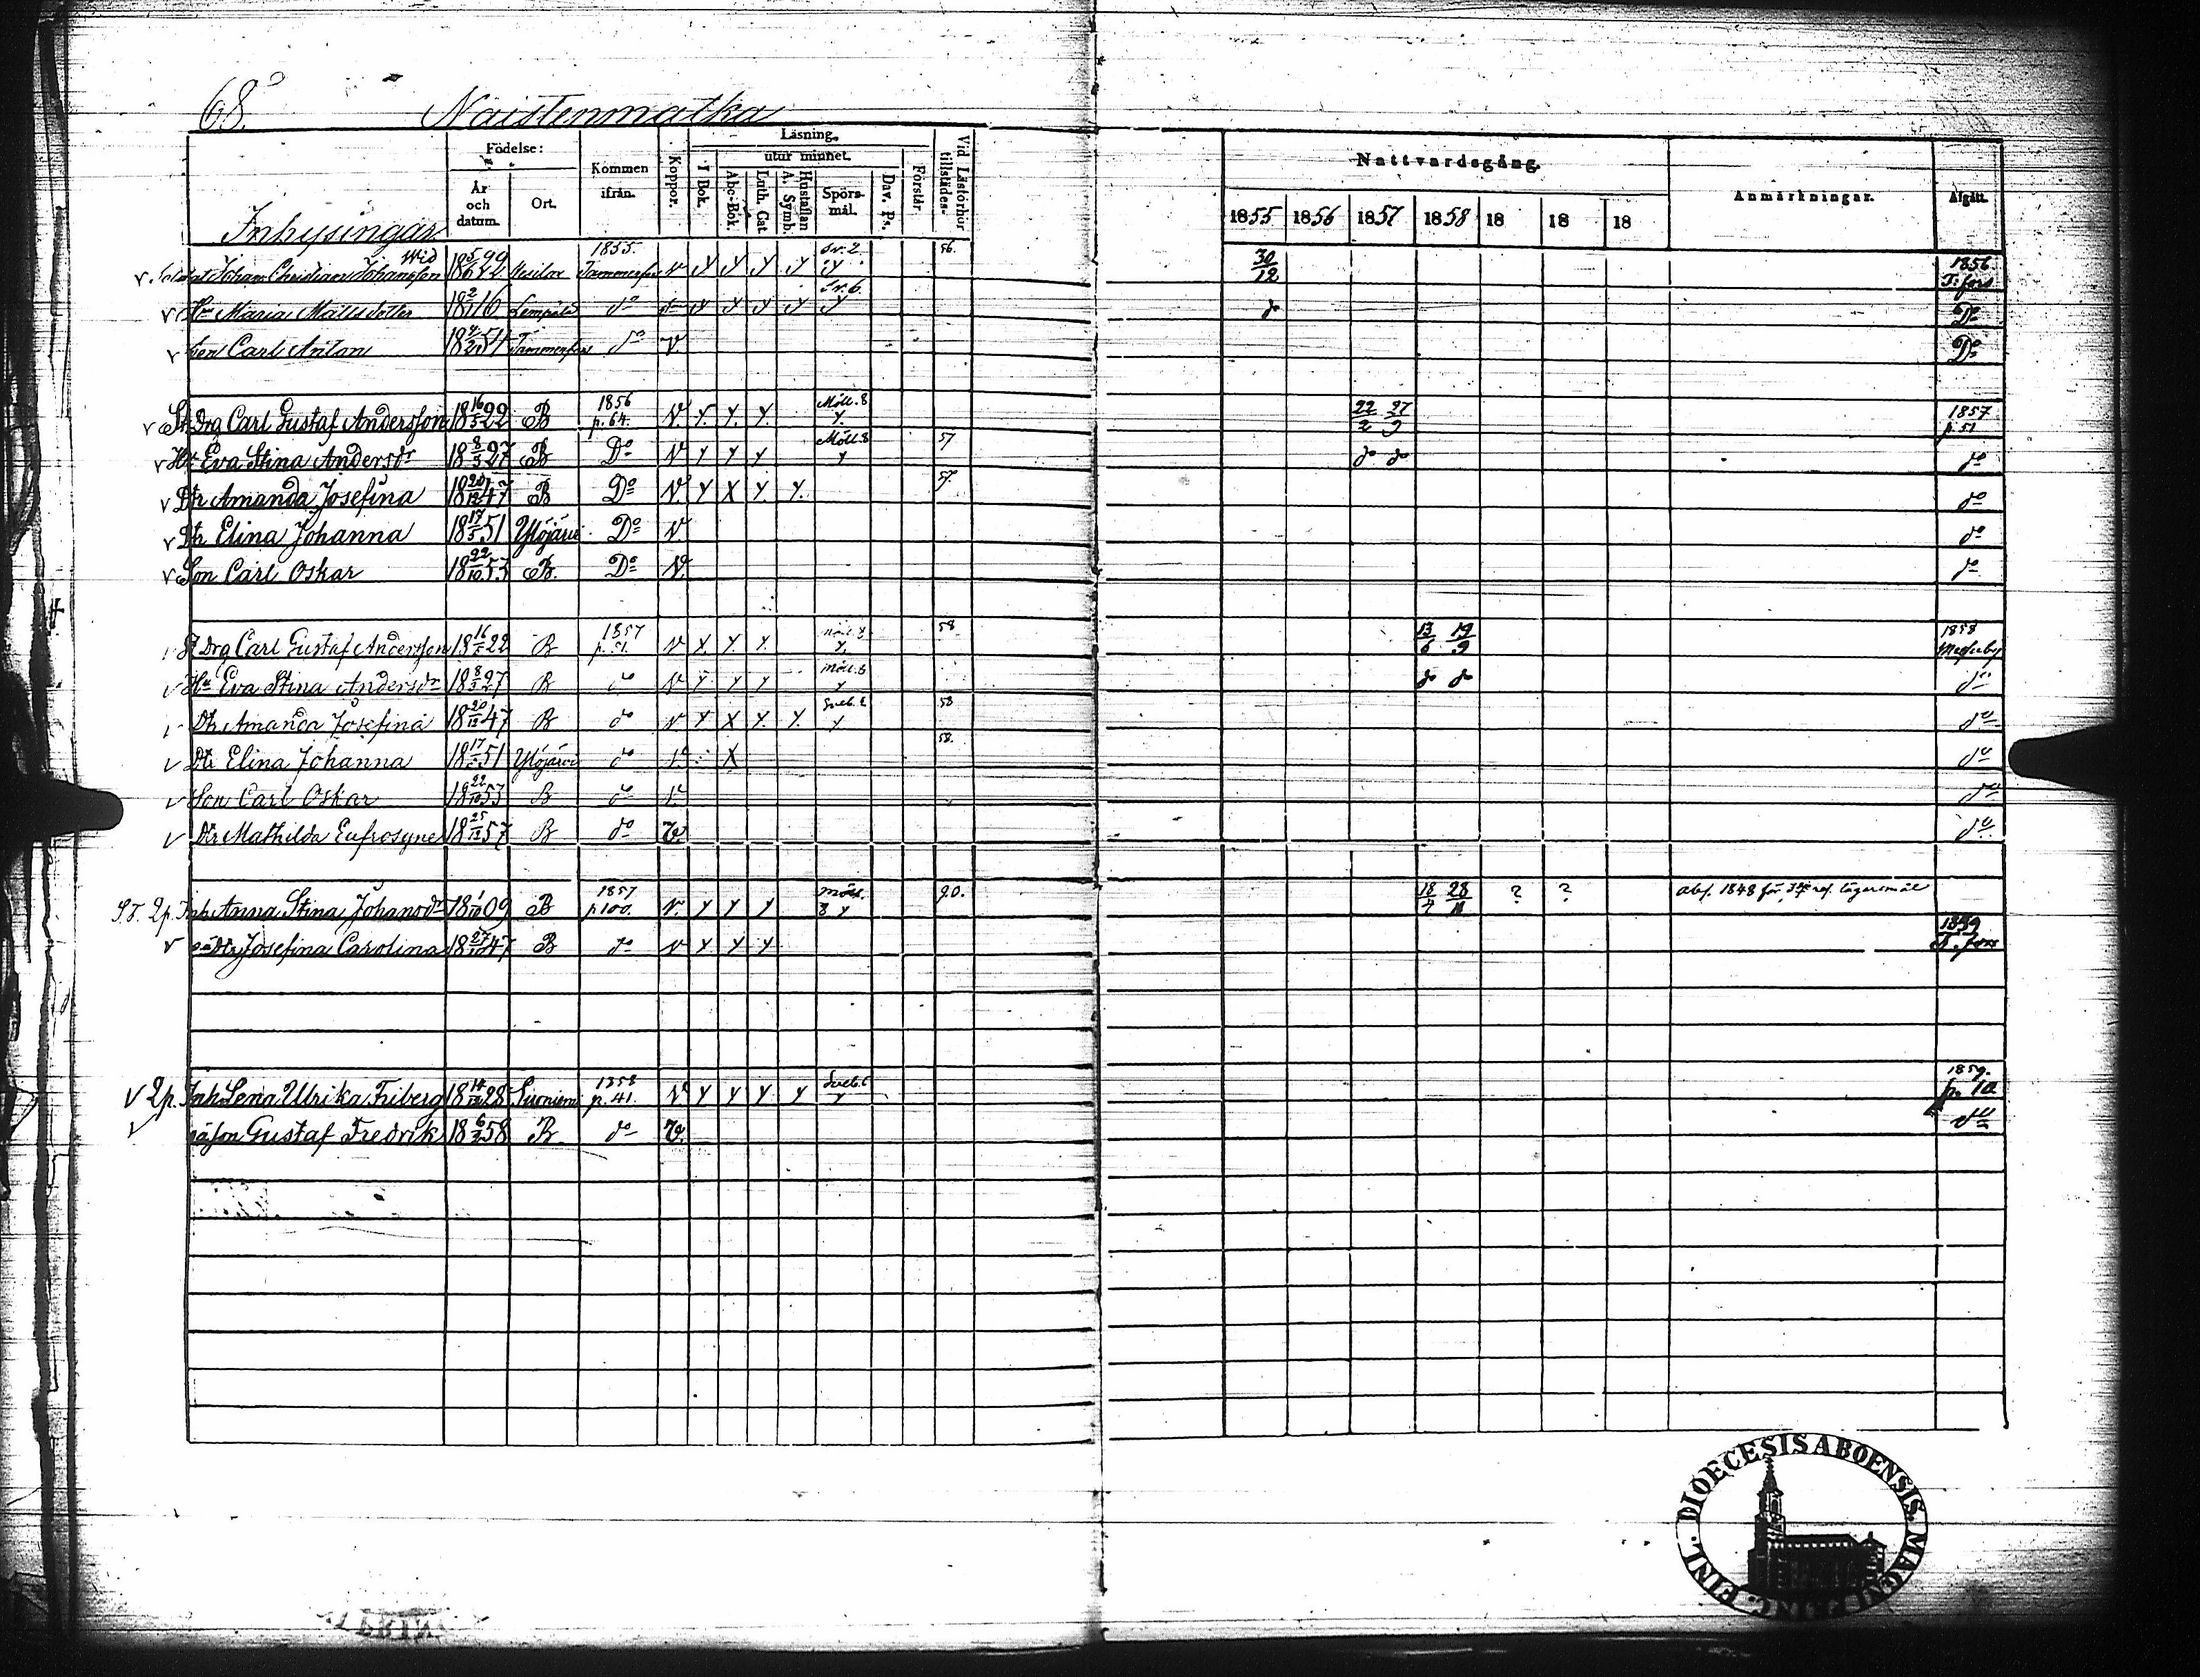 68.
Naistenmatka
Inhysingar
Födelse:
År och datum.
Ort.
Kommen ifrån.
Koppor.
Läsning.
I Bok.
utur minnet.
Abc-Bok.
Luth. Cat
Hustaflan A. Symb.
Spörsmål.
Dav. Ps.
Förstår
Vid Läsförhör tillstädes-
Nattvardsgång.
1855 1856 1857 1858 18 18 18
Anmärkningar.
Afgått.
v. Soldat Johan Christian Johansson Wid 18 5/6 22 1855. Tammerfors v y y y y Sv. 2. y 56. 30/12 1856 T:fors
v Hu Maria Mattsdotter 18 2/1 16 Lempälä do y y y y Sv. 6. y do Do
v Son Carl Anton 54 Tammerfors do v. Do
v St. Drg Carl Gustaf Andersson 18 16/5 22 B 1856 p. 64. v. y. y. y. Möll. 8 y. 22/2 27/9 1857 p. 51
v Hu Eva Stina Andersdr 18 8/3 27 B Do v y y y Möll 8 y 57 do do do
v Dtr Amanda Josefina 18 20/12 47 B Do v. y x y. y. 57. do
v Dtr Elina Johanna 18 17/5 51 Ylöjärvi Do v do
v Son Carl Oskar 18 22/10 53 B. Do v. do
St Drg Carl Gustaf Andersson 18 16/5 22 B 1857 p. 51. v x y. y. y. 58 13/6 19/9 1858
v Hu Eva Stina Andersdr 18 8/3 27 B do v y y y Möll. 8 y do do do
v Dtr Amanda Josefina 18 20/12 47 B do v y x y. y. Sveb. 2 y 58 do
v Dtr Elina Johanna 18 17/5 51 Ylöjärvi do v. x 58. do
v Son Carl Oskar 18 22/10 53 B do v. do
v Dtr Mathilda Eufrosyne 18 25/12 57 B do v. do
2p. Inh. Anna Stina Johansdr 18 1/10 09 B 1857 p 100. v. y y y Möll. 8 y 18/7 28/11 ? ? abs. 1848 för lägersmål
v oä Dtr Josefina Carolina 18 27/10 47 B do v y y y 1859 T. fors
v 2p. Inh Lena Ulrika Friberg 28 Suoniemi 1858 p. 41. v y y y y Sveb. 6 y 1859. p. 10
v oä son Gustaf Fredrik 18 6/2 58 B do v. do
DIOECESIS ABOENSIS. MAGNI. PRINC. FINL.